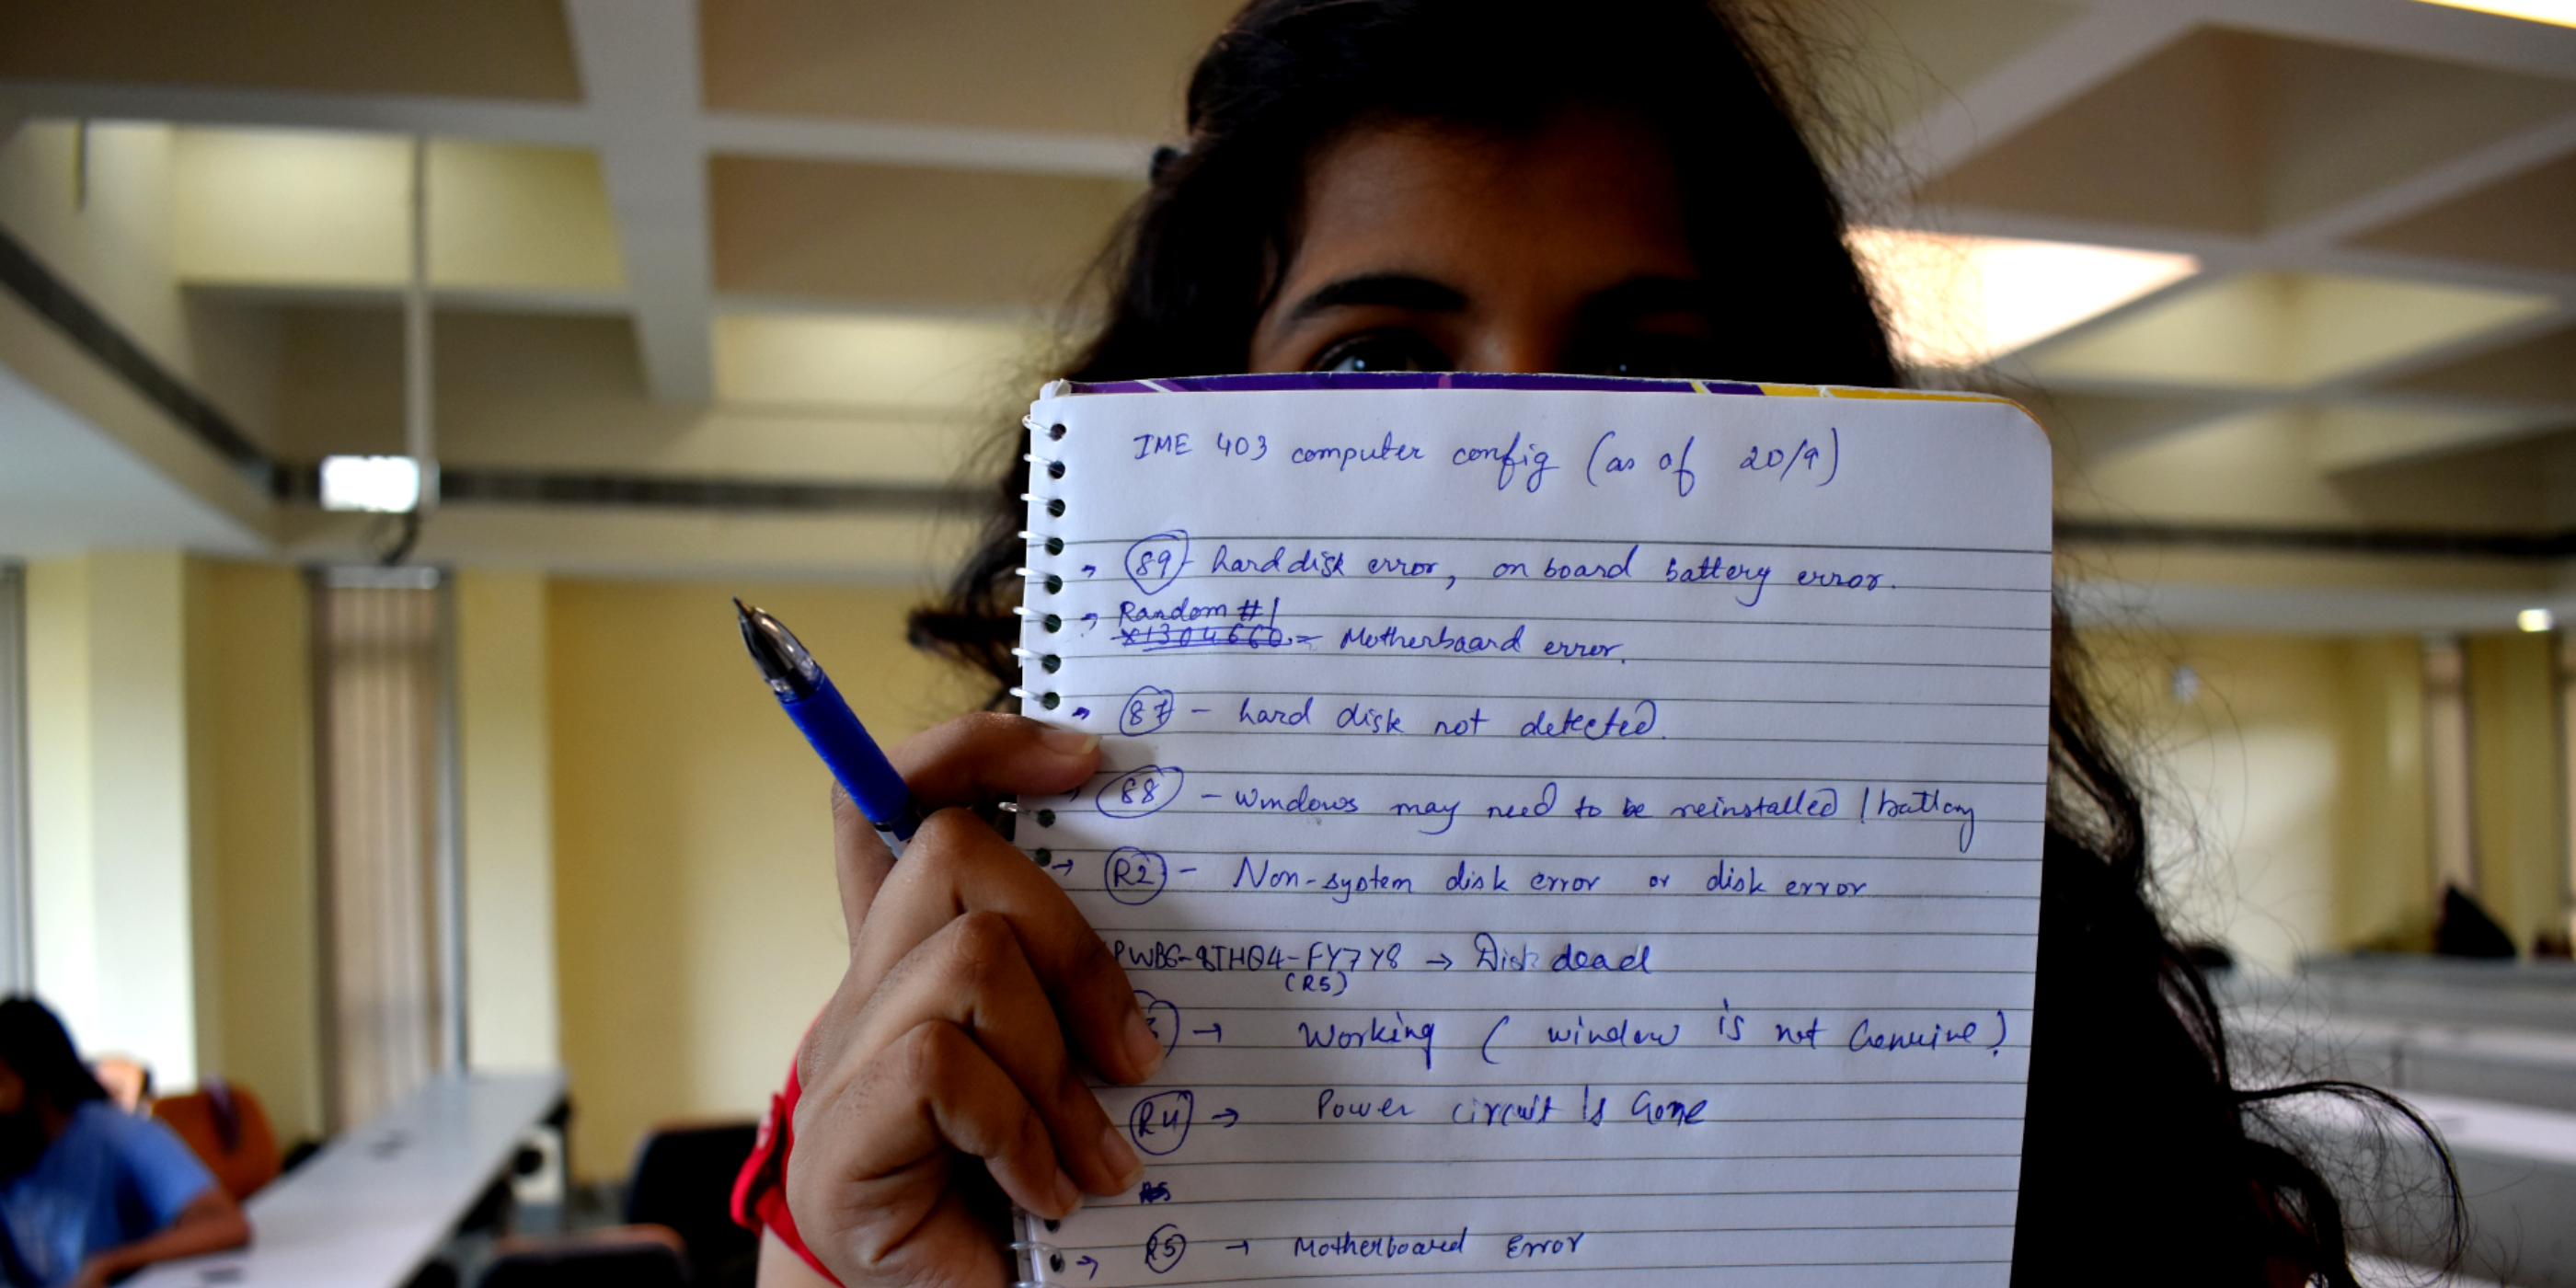 IME 403 computer config (as of 20/9)
→ 89 - hard disk error, on board battery error.
→ Random #1
x1304660 = Motherboard error.
→ 87 - hard disk not detected.
→ 88 - windows may need to be reinstalled / battery
→ R2 - Non-system disk error or disk error
PWBG-8THQ4-FY7Y8 → Disk dead
(R5)
→ Working ( window is not Genuine )
R4 → Power circuit is Gone
R5
→ R5 → Motherboard Error